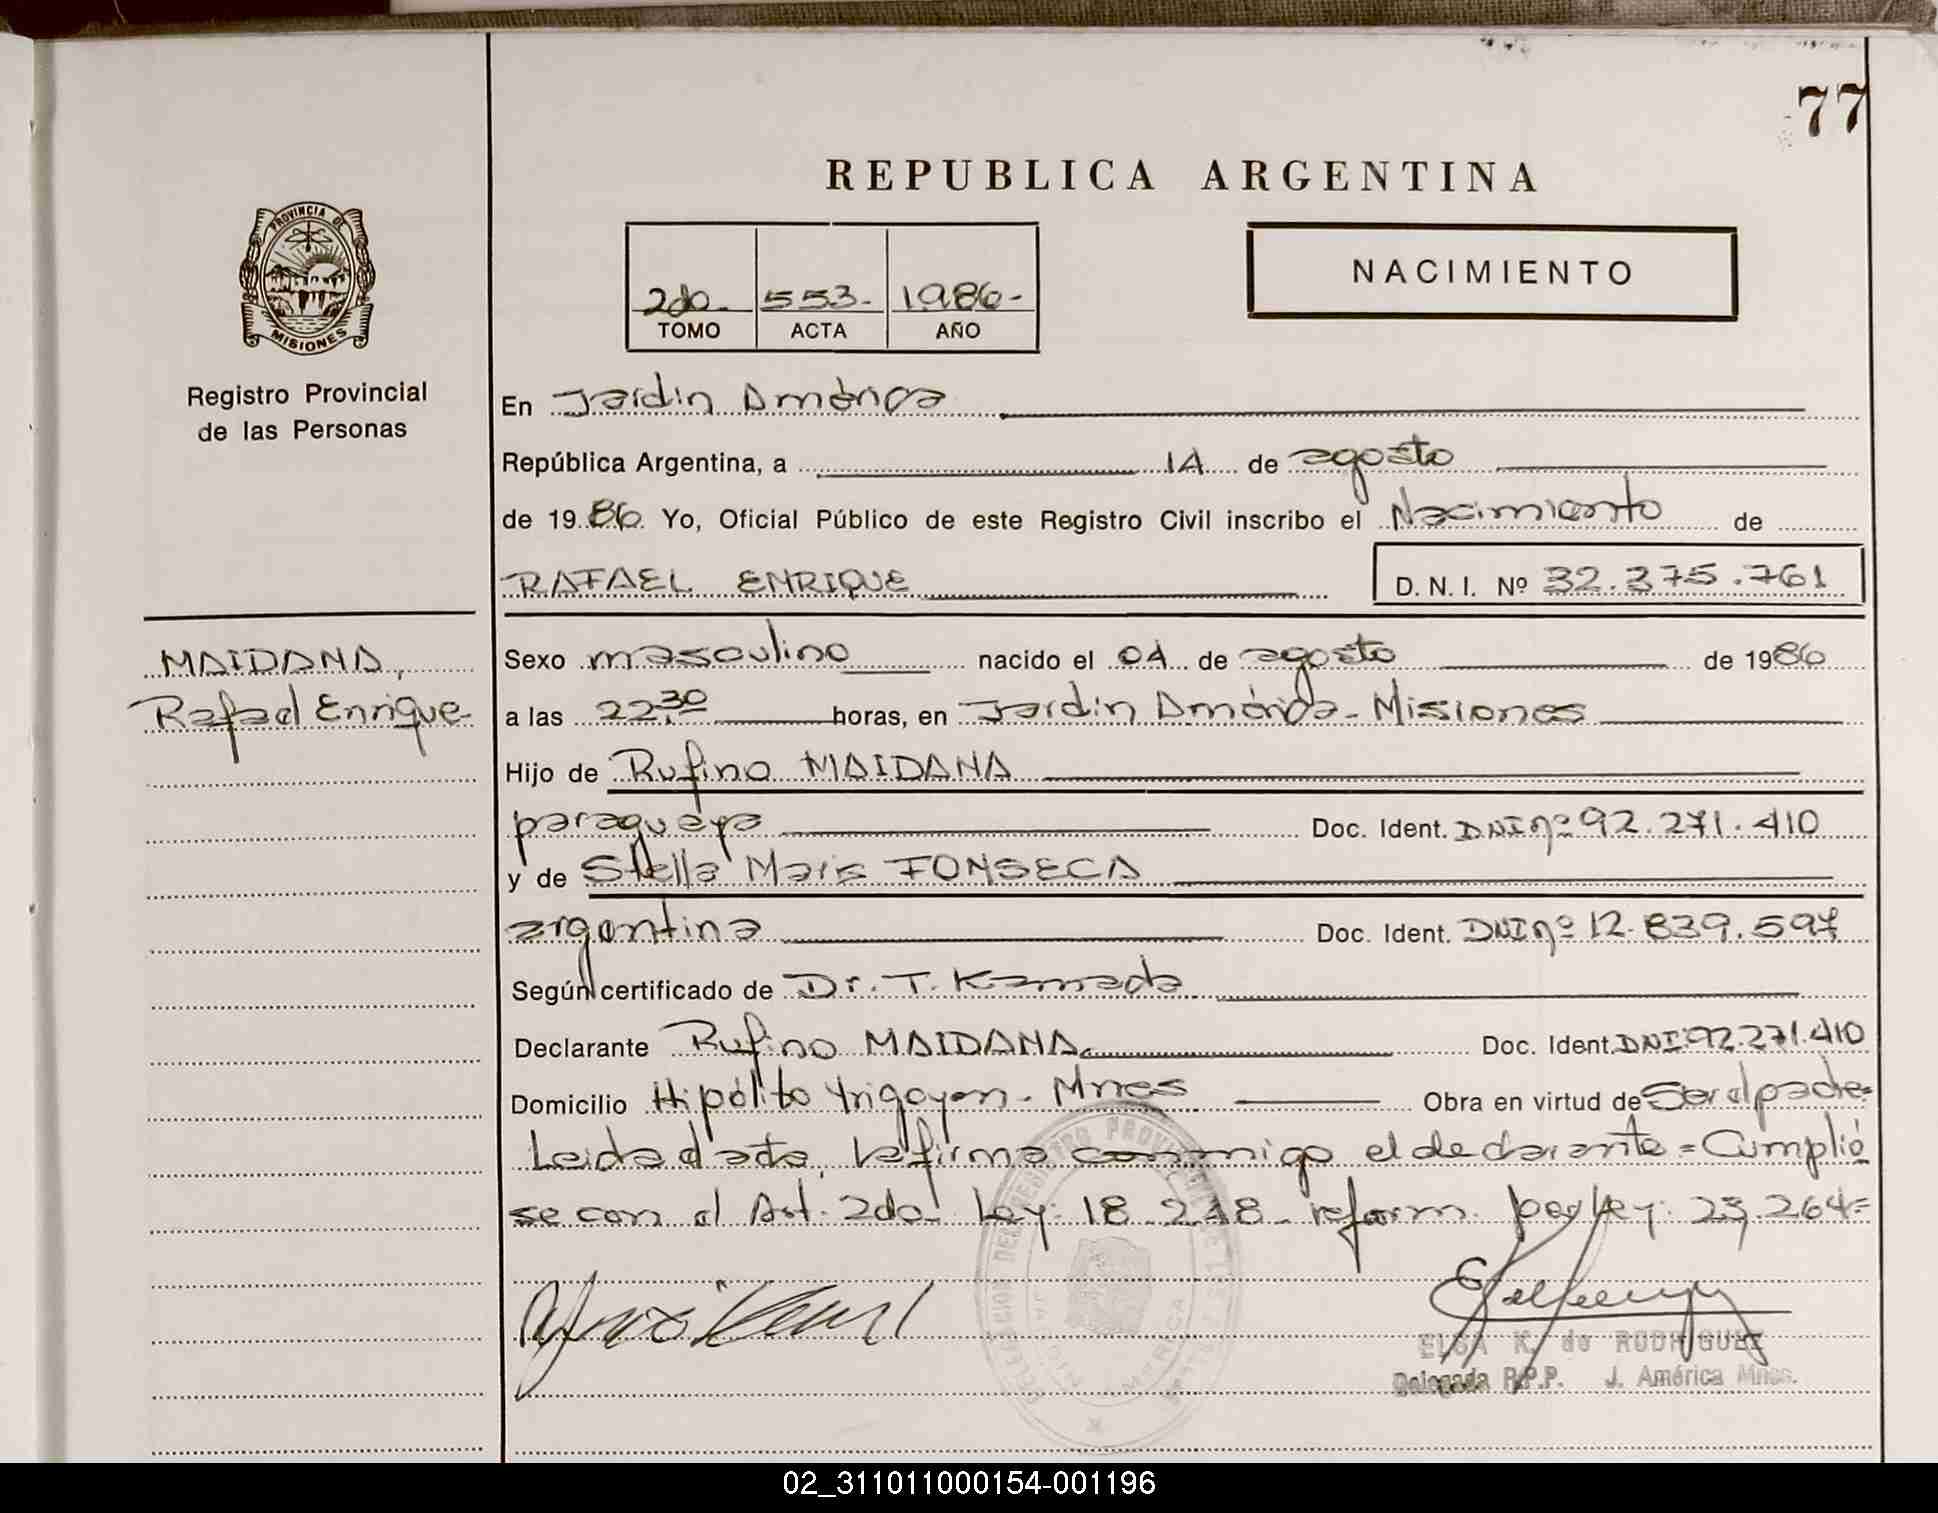 77
REPUBLICA ARGENTINA
PROVINCIA DE
MISIONES
Registro Provincial
de las Personas
2do.- 553- 1986-
TOMO ACTA AÑO
NACIMIENTO
En Jardin América
República Argentina, a 14 de agosto
de 1986. Yo, Oficial Público de este Registro Civil inscribo el Nacimiento de
RAFAEL ENRIQUE D. N. I. Nº 32.375.761
MAIDANA,
Rafael Enrique-
Sexo masculino nacido el 04 de agosto de 1986
a las 22,30 horas, en Jardin América - Misiones
Hijo de Rufino MAIDANA
paraguaya Doc. Ident. DNI nº 92.271.410
y de Stella Maris FONSECA
argentina Doc. Ident. DNI nº 12.839.597
Según certificado de Dr. T. Kamada
Declarante Rufino MAIDANA Doc. Ident. DNI 92.271.410
Domicilio Hipólito Yrigoyen - Mnes Obra en virtud de Ser el padre=
Leida el acta, la firma conmigo el declarante = Cumplió
se con el Art. 2do. Ley: 18.248 - reform. por ley: 23.264=
ELSA K. de RODRIGUEZ
Delegada R.P.P. J. América Mnes.
02_311011000154-001196